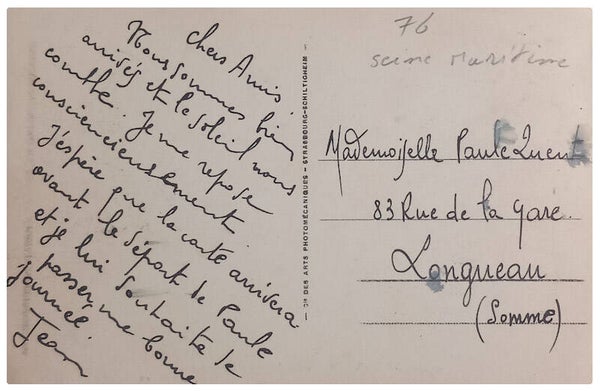 chers Amis
Nous sommes bien
arrivés et le soleil nous
comble. Je me repose
consciencieusement.
J'espère que la carte arrivera
avant le départ de Paule
et je lui souhaite de
passer une bonne
journée.
Jean
Cie DES ARTS PHOTOMÉCANIQUES - STRASBOURG-SCHILTIGHEIM
76
seine maritime
Mademoiselle Paule Quent
83 Rue de la Gare.
Longueau
(Somme)